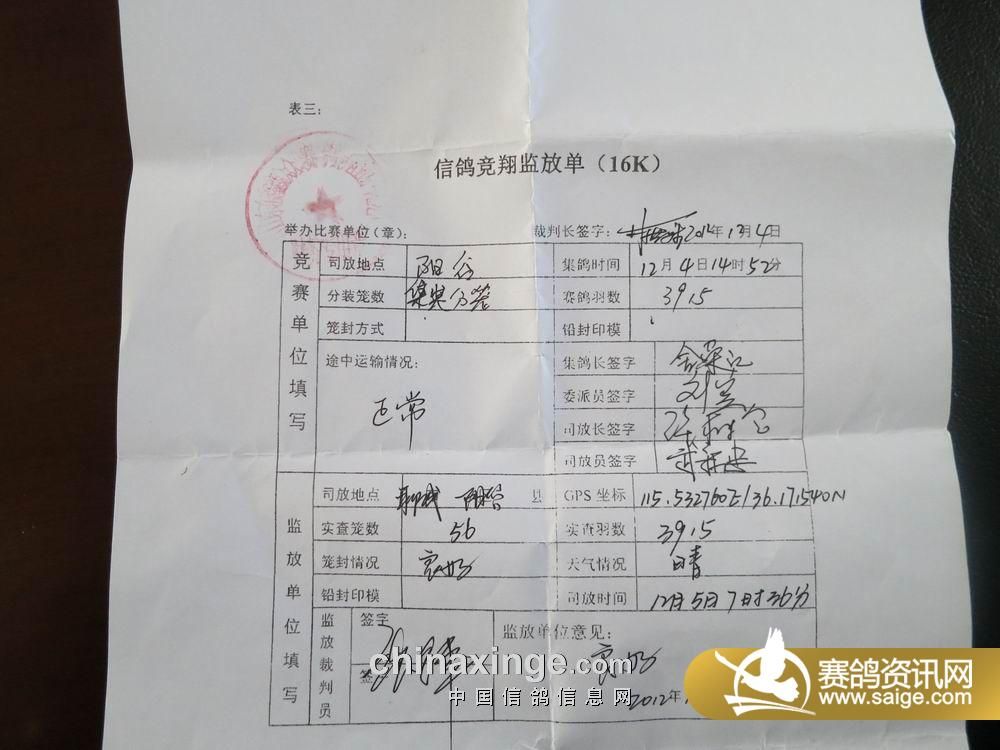 表三:
信鸽竞翔监放单（16K）
举办比赛单位（章）: 裁判长签字: 2012年12月4日
竞赛单位填写
司放地点 阳谷 集鸽时间 12月4日14时52分
分装笼数 集奖分装 赛鸽羽数 3915
笼封方式 铅封印模
途中运输情况: 正常
集鸽长签字
委派员签字
司放长签字
司放员签字
监放单位填写
司放地点 聊城 阳谷 县 GPS坐标 115.532760E/36.171540N
实查笼数 56 实查羽数 3915
笼封情况 良好 天气情况 晴
铅封印模 司放时间 12月5日7时36分
监放裁判员 签字 监放单位意见: 良好
2012年
chinaxinge.com
中国信鸽信息网
赛鸽资讯网
www.saige.com